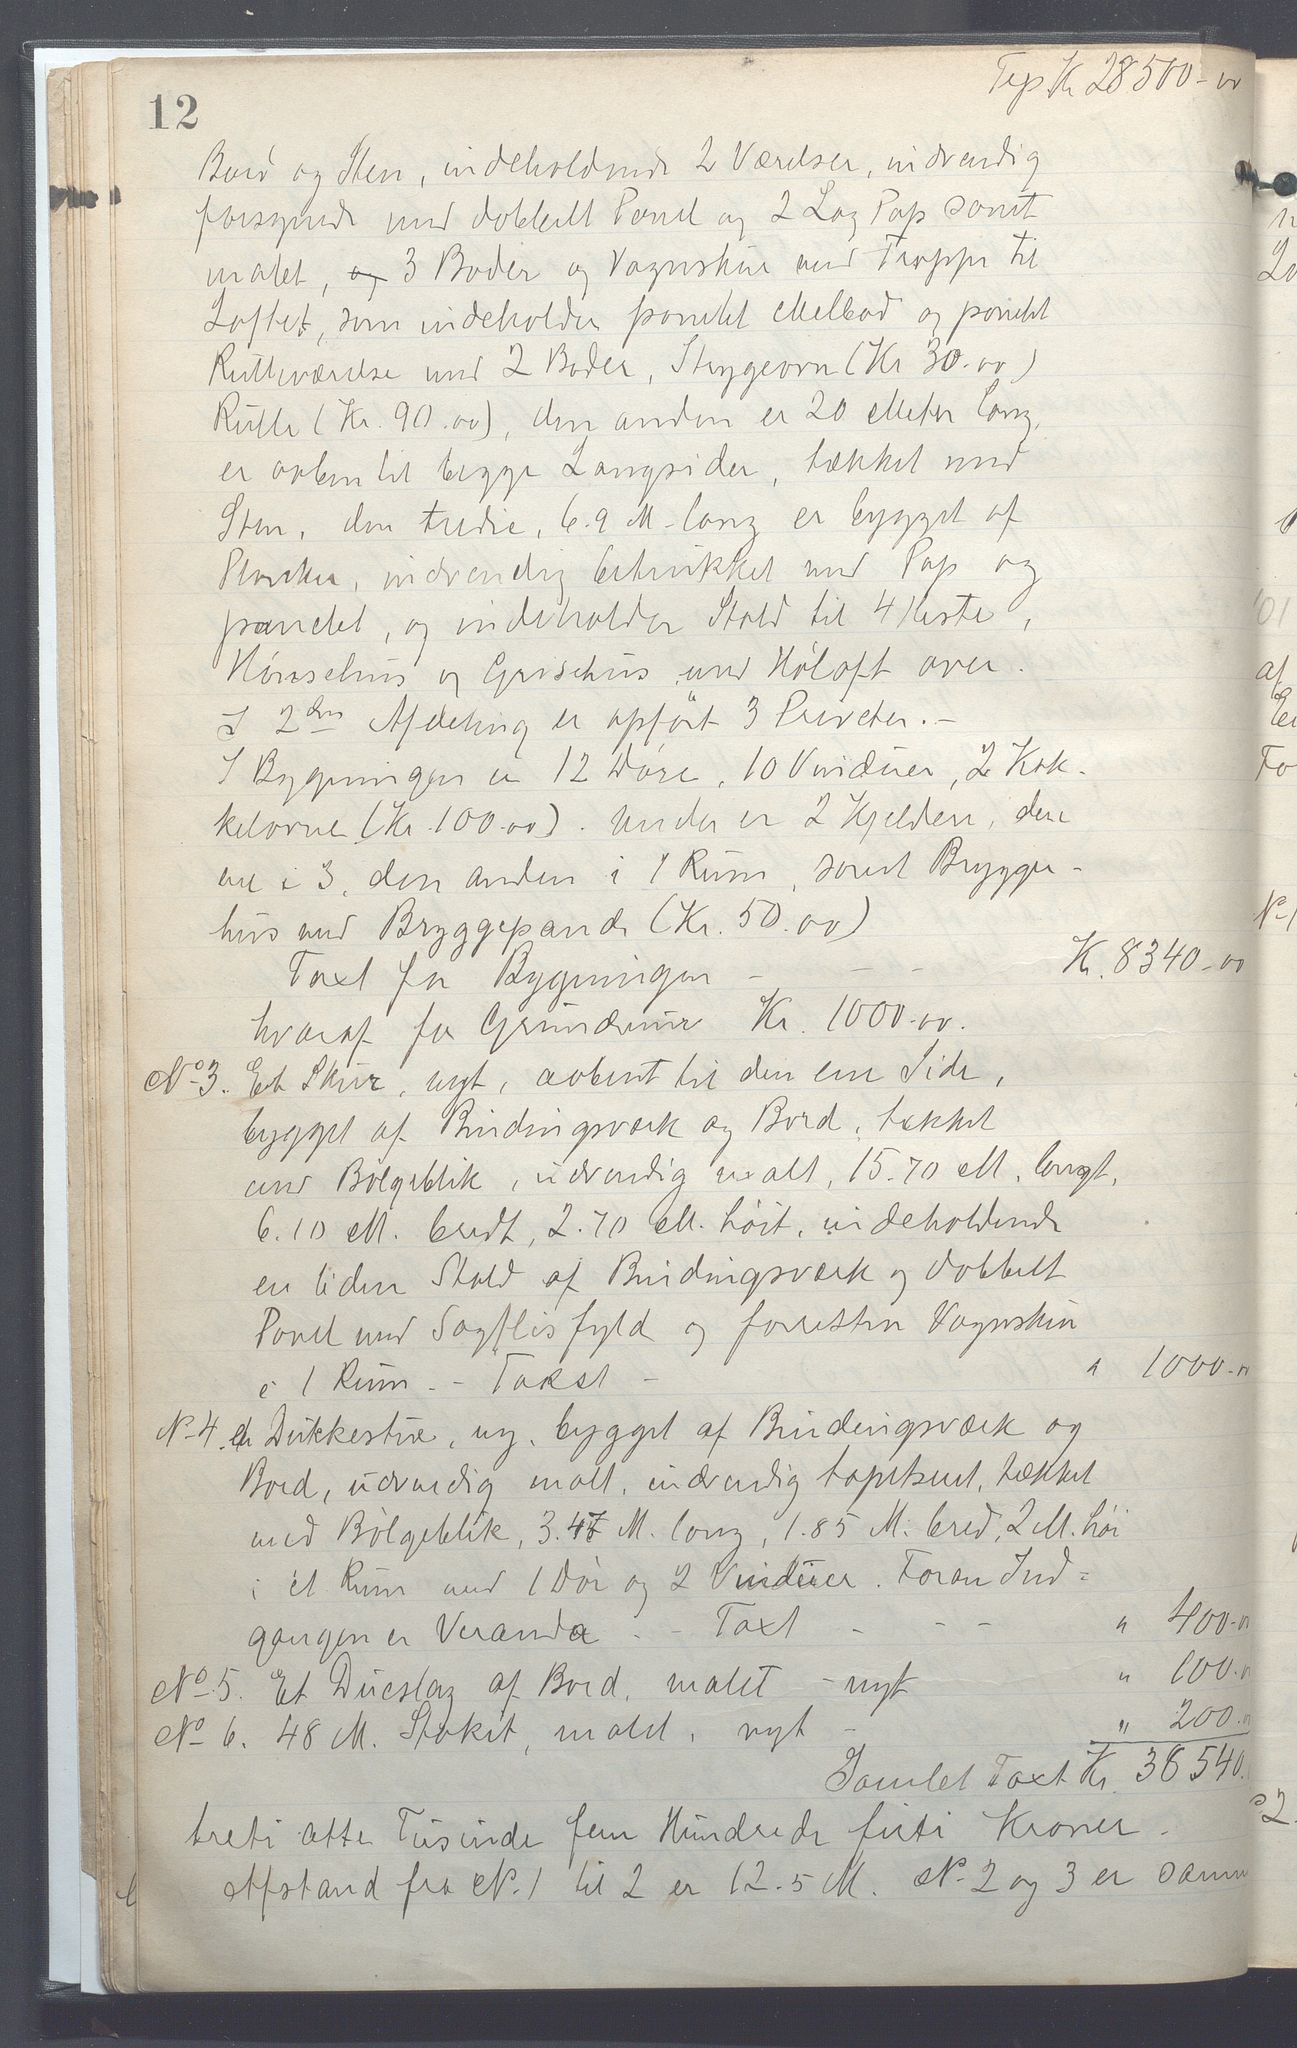 12
Trp Kr 28500-00
Bord og Sten, indeholdende 2 Værelser, indvendig
forsynede med dobbelt Panel og 2 Lag Pap samt
malet, og 3 Boder og Vognskur med Trappe til
Loftet, som indeholder panelet Melbod og panelet
Rulleværelse med 2 Boder, Strygeovn (Kr 30.00)
Rulle (Kr. 90.00), den anden er 20 Meter lang,
er aaben til begge Langsider, tækket med
Sten, den tredie, 6.9 M lang er bygget af
Planker, indvendig betrukket med Pap og
panelet, og indeholder Stald til 4 Heste,
Hønsehus og Grisehus med Høloft over.
I 2den Afdeling er opført 3 Priveter.-
I Bygningen er 12 Døre, 10 Vinduer, 2 Kak-
kelovne (Kr. 100.00). Under er 2 Kjeldere, den
ene i 3, den anden i 1 Rum, samt Brygge-
hus med Bryggepande (Kr. 50.00)
Taxt for Bygningen - - - Kr. 8340-00
hvoraf for Grundmur Kr. 1000.00.
No 3. Et Skur, nyt, aabent til den ene Side,
bygget af Bindingsværk og Bord, tækket
med Bølgeblik, udvendig malt, 15.70 M. langt,
6.10 M. bredt, 2.70 M. høit, indeholdende
en liden Stald af Bindingsværk og dobbelt
Panel med Sagflisfyld og forresten Vognskur
i 1 Rum. - Takst - " 1000-00
No 4. En Dukkestue, ny, bygget af Bindingsværk og
Bord, udvendig malt, indvendig tapetseret, tækket
med Bølgeblik, 3.47 M. lang, 1.85 M. bred, 2 M. høi
i et Rum med 1 Dør og 2 Vinduer. Foran Ind=
gangen er Veranda. - Taxt - - - " 400-00
No 5. Et Dueslag af Bord, malet - nyt " 100.00
No 6. 48 M. Stakit, malet, nyt - " 200.00
Samlet Taxt Kr. 38540.
treti otte Tusinde fem Hundrede firti Kroner.
Afstand fra No. 1 til 2 er 12.5 M. No 2 og 3 er